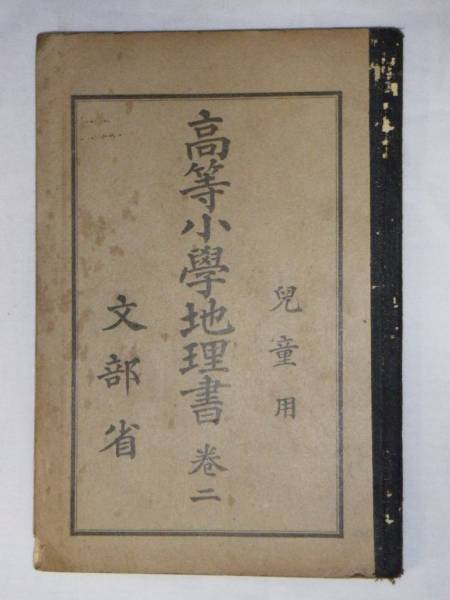 兒童用
高等小學地理書 卷二
文部省